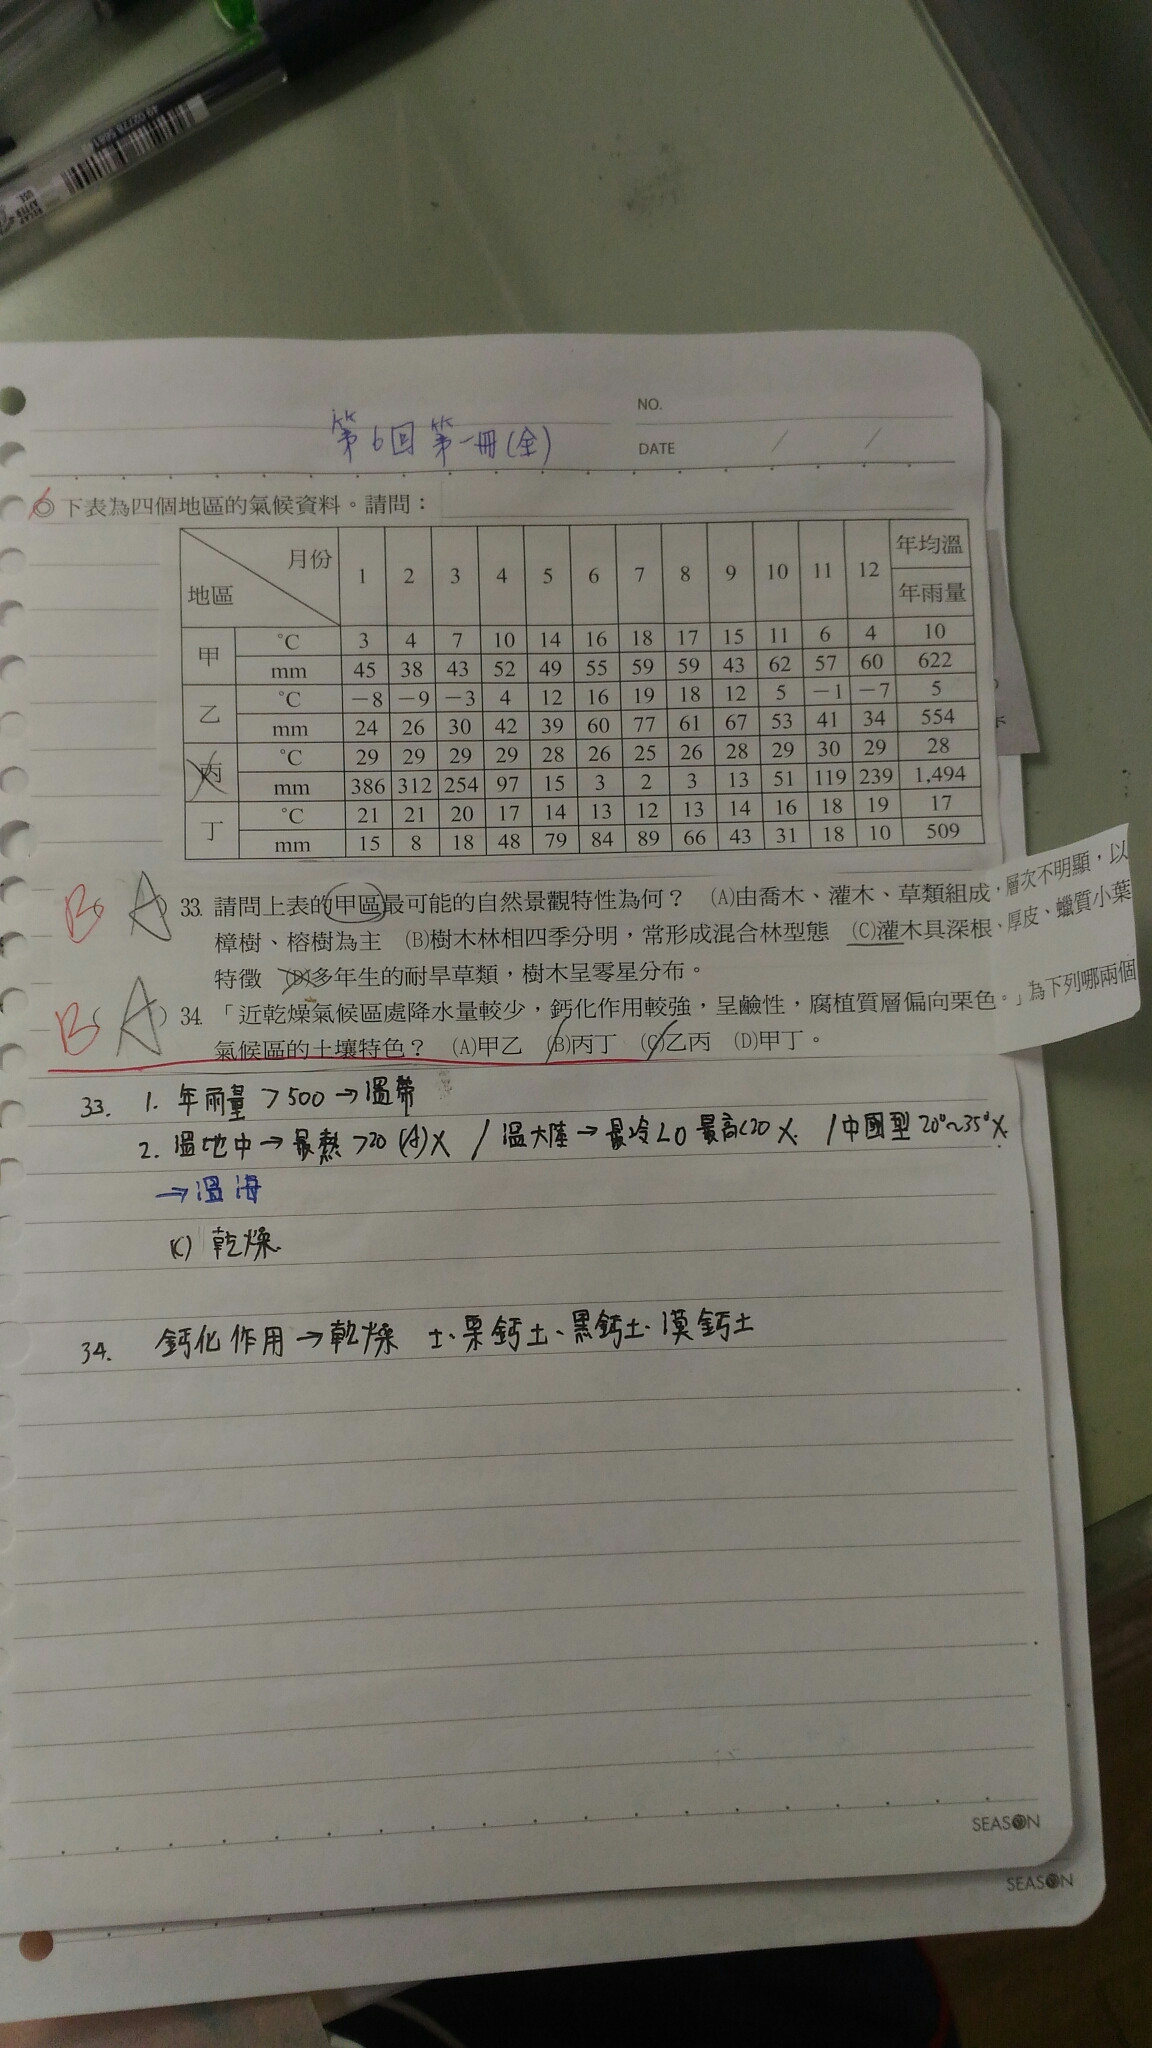 第6回 第一冊(全)
NO.
DATE / /
◎下表為四個地區的氣候資料。請問：
地區 月份 1 2 3 4 5 6 7 8 9 10 11 12 年均溫 年雨量
甲 ℃ 3 4 7 10 14 16 18 17 15 11 6 4 10
mm 45 38 43 52 49 55 59 59 43 62 57 60 622
乙 ℃ －8 －9 －3 4 12 16 19 18 12 5 －1 －7 5
mm 24 26 30 42 39 60 77 61 67 53 41 34 554
丙 ℃ 29 29 29 29 28 26 25 26 28 29 30 29 28
mm 386 312 254 97 15 3 2 3 13 51 119 239 1,494
丁 ℃ 21 21 20 17 14 13 12 13 14 16 18 19 17
mm 15 8 18 48 79 84 89 66 43 31 18 10 509
B A ) 33. 請問上表的甲區最可能的自然景觀特性為何？ (A)由喬木、灌木、草類組成，層次不明顯，以
樟樹、榕樹為主 (B)樹木林相四季分明，常形成混合林型態 (C)灌木具深根、厚皮、蠟質小葉
特徵 (D)多年生的耐旱草類，樹木呈零星分布。
B A ) 34. 「近乾燥氣候區處降水量較少，鈣化作用較強，呈鹼性，腐植質層偏向栗色。」為下列哪兩個
氣候區的土壤特色？ (A)甲乙 (B)丙丁 (C)乙丙 (D)甲丁。
33. 1. 年雨量 >500→溫帶
2. 溫地中→最熱>20 (A)X / 溫大陸→最冷<0 最高<20 X. /中國型 20°~35° X.
→溫海
(C) 乾燥.
34. 鈣化作用→乾燥 土、栗鈣土、黑鈣土、漠鈣土
SEASON
SEASON